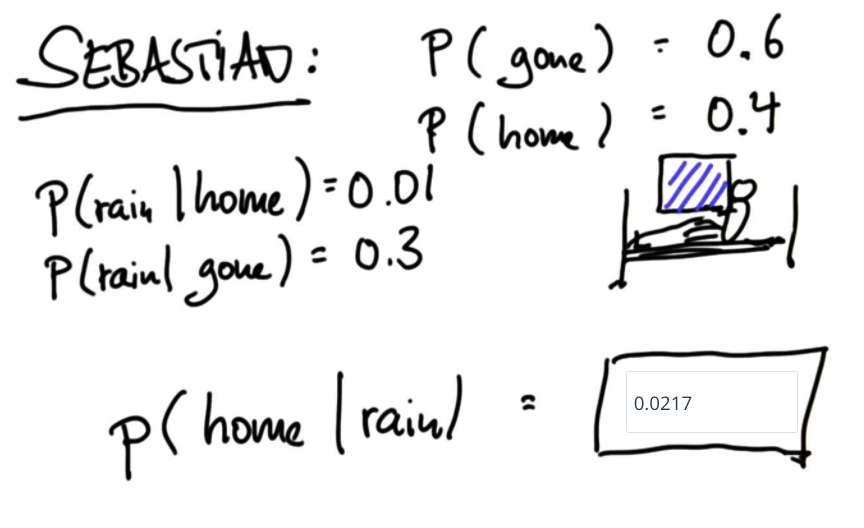 SEBASTIAN:
P(gone) = 0.6
P(home) = 0.4
P(rain | home) = 0.01
P(rain | gone) = 0.3
P(home | rain) = 0.0217